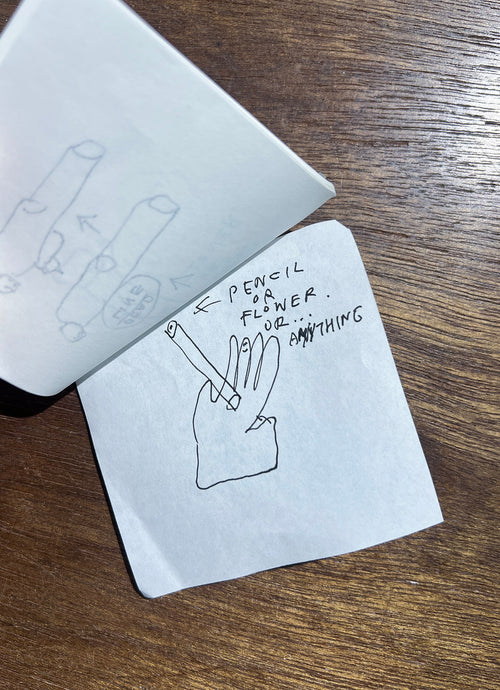 ← PENCIL
OR
FLOWER.
OR...
ANYTHING